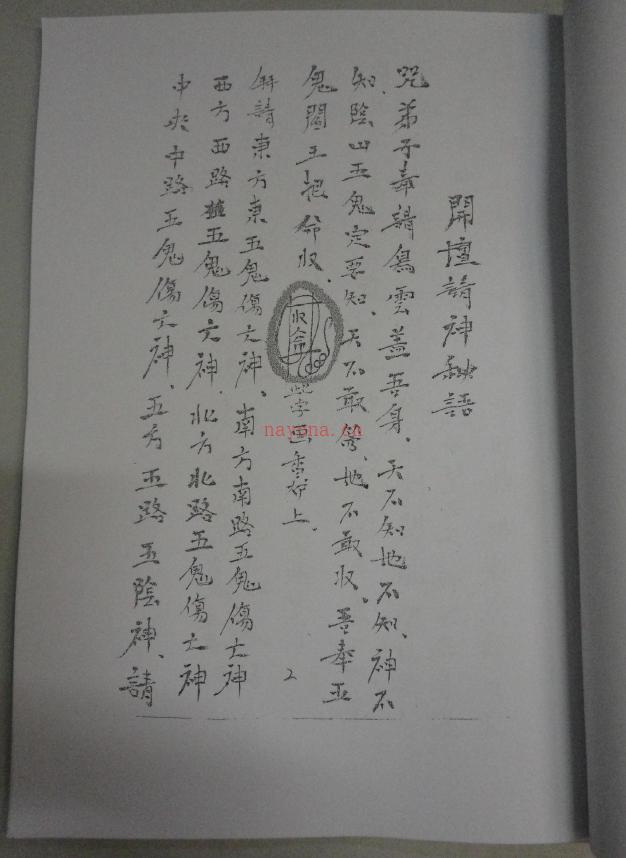 開壇請神秘語
咒弟子奉請烏雲蓋吾身、天不知地不知、神不
知、陰山五鬼定要知、天不敢答、地不敢收、吾奉五
鬼閻王把命收、
收命
此字画香炉上、
觧請東方東五鬼傷亡神、南方南路五鬼傷亡神
西方西路五鬼傷亡神、北方北路五鬼傷亡神
中央中路五鬼傷亡神、五方五路五陰神、請
2
nayona.cn